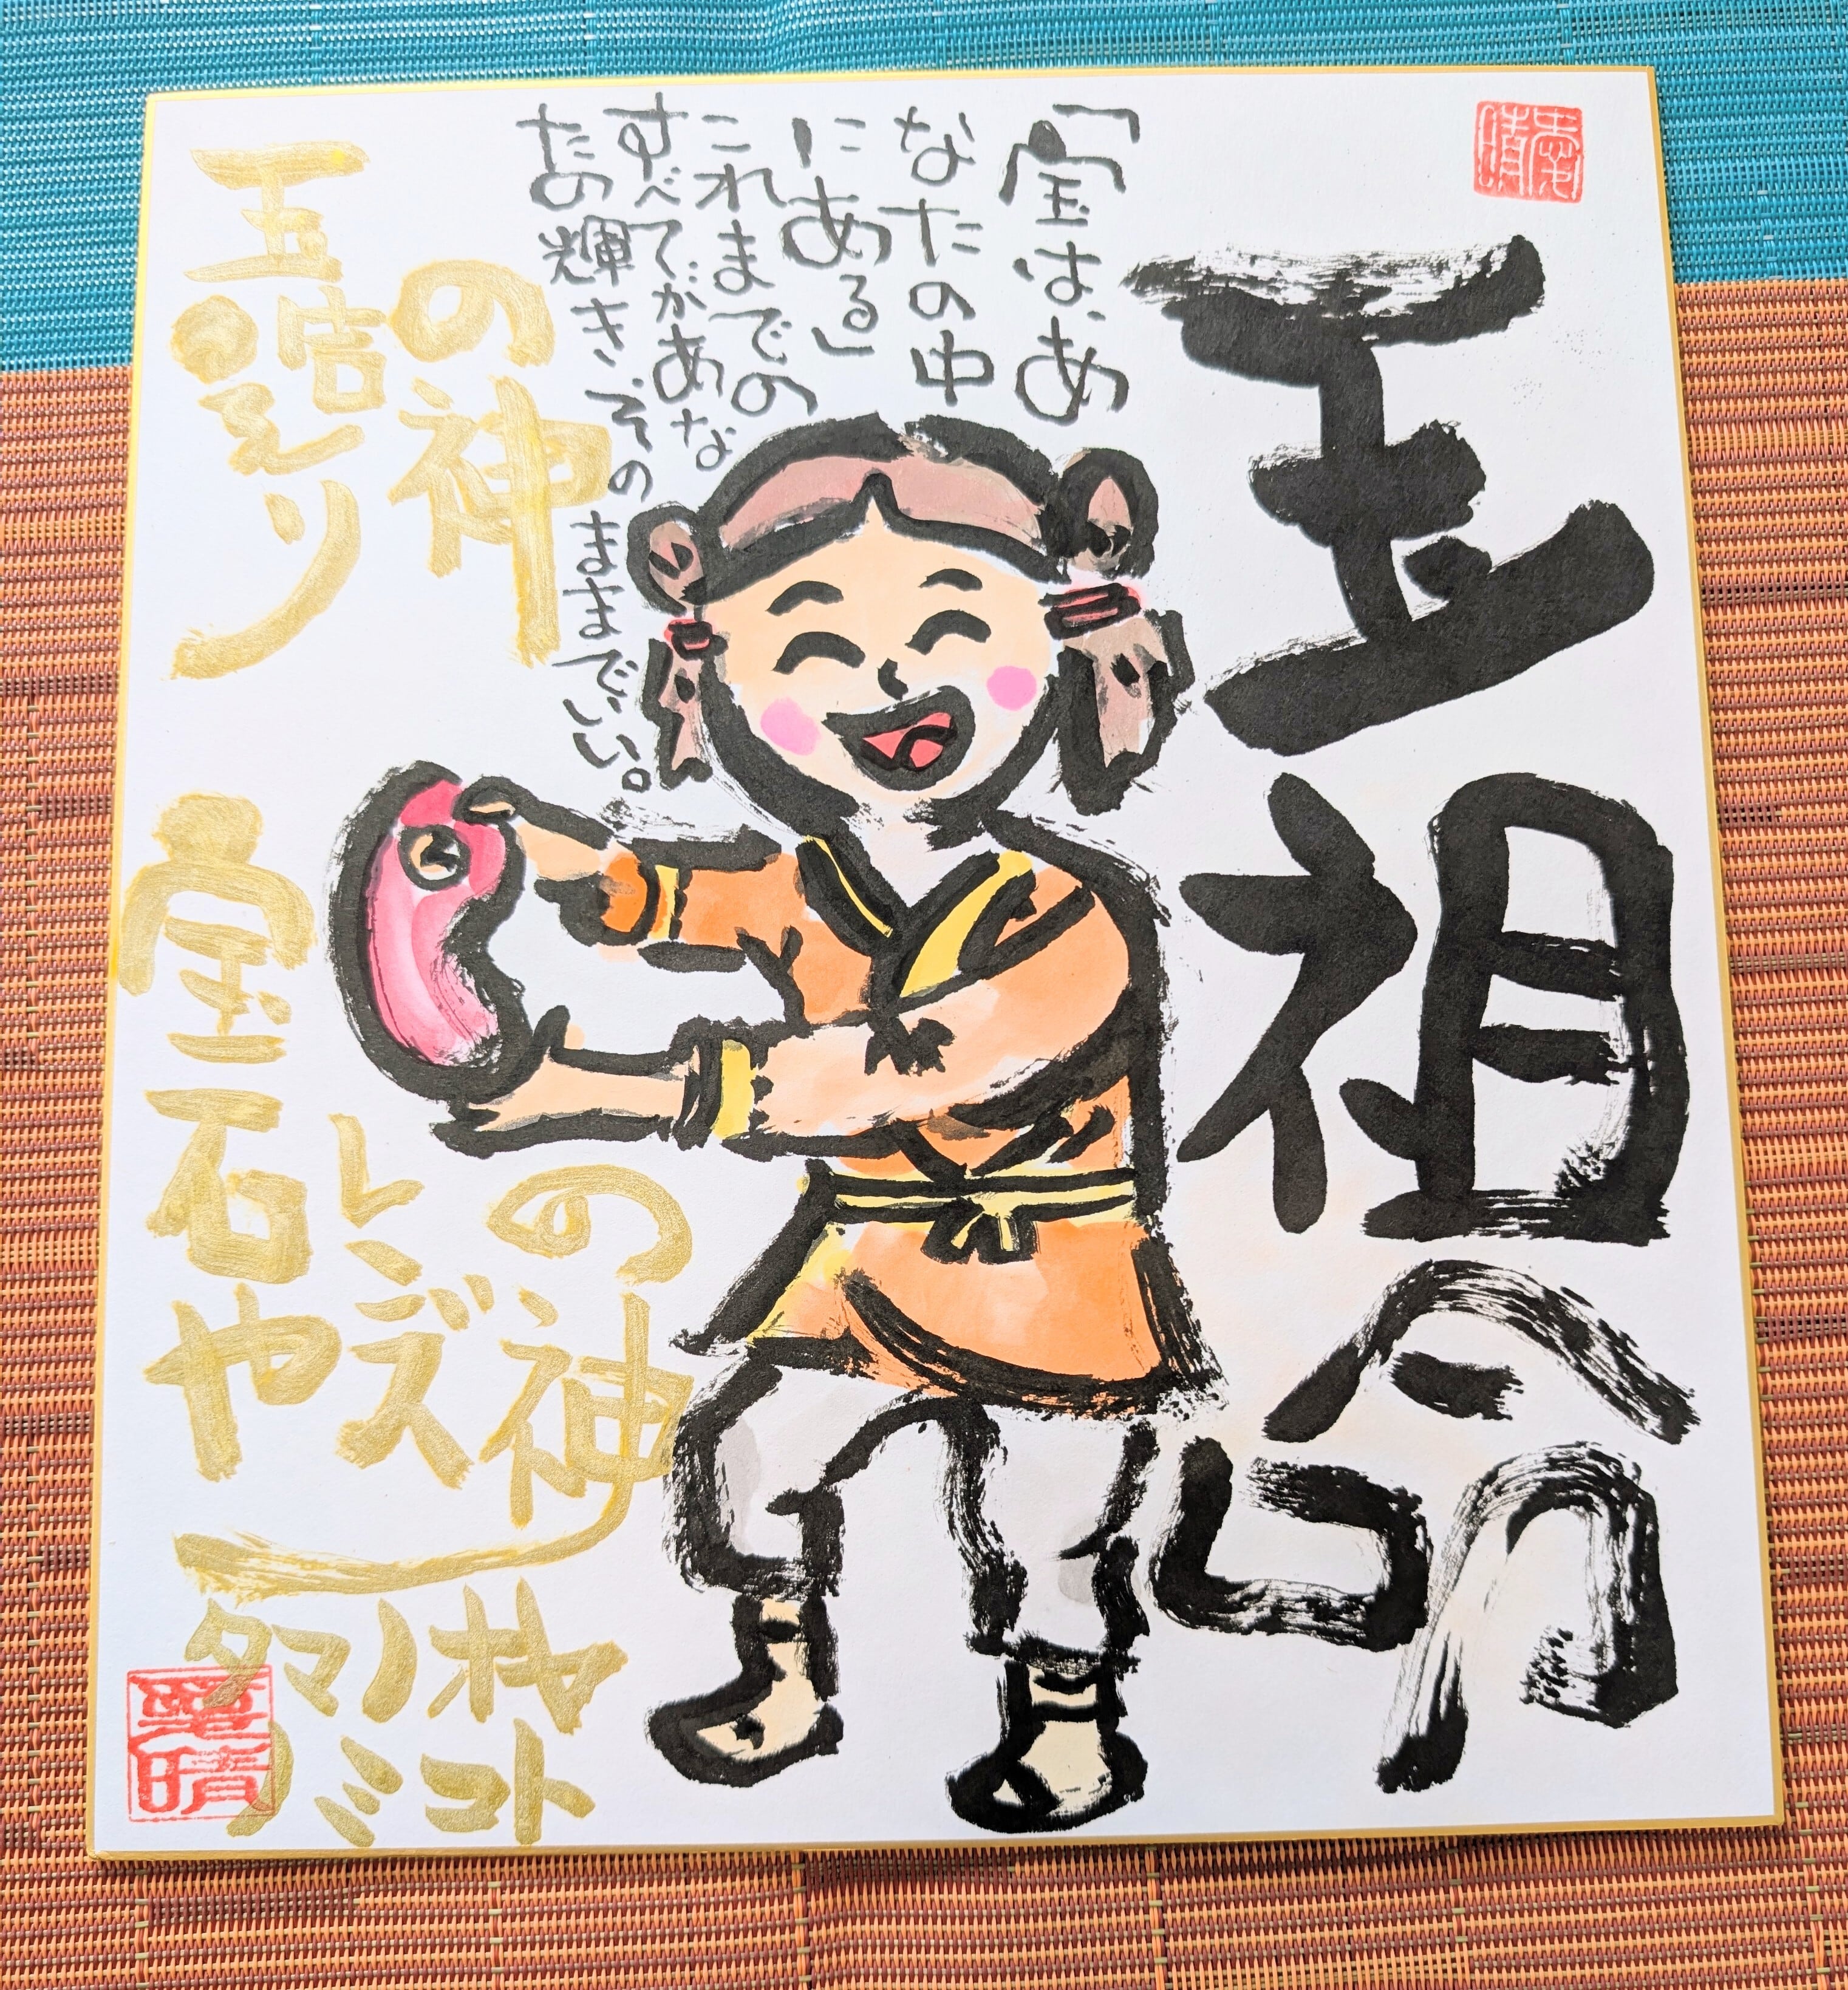 愛晴
玉祖命
「宝は、あ
なたの中
にある」
これまでの
すべてがあな
たの輝きそのままでいい。
玉造り
の神
宝石や
レンズ
の神
タマノオヤ
ノミコト
愛晴